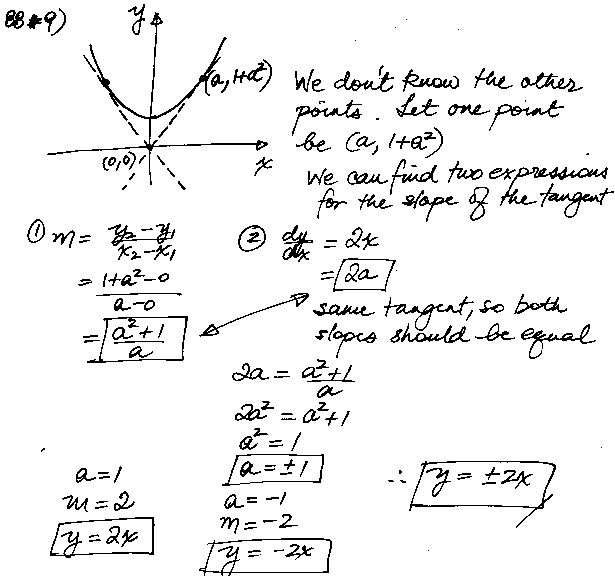 88 #9)
y
(a, 1+a²)
(0,0)
x
We don't know the other
points. Let one point
be (a, 1+a²)
We can find two expressions
for the slope of the tangent
① m = y₂-y₁ / x₂-x₁
= 1+a²-0 / a-0
= a²+1 / a
② dy/dx = 2x
= 2a
same tangent, so both
slopes should be equal
2a = a²+1 / a
2a² = a²+1
a² = 1
a = ±1
a = 1
m = 2
y = 2x
a = -1
m = -2
y = -2x
∴ y = ±2x